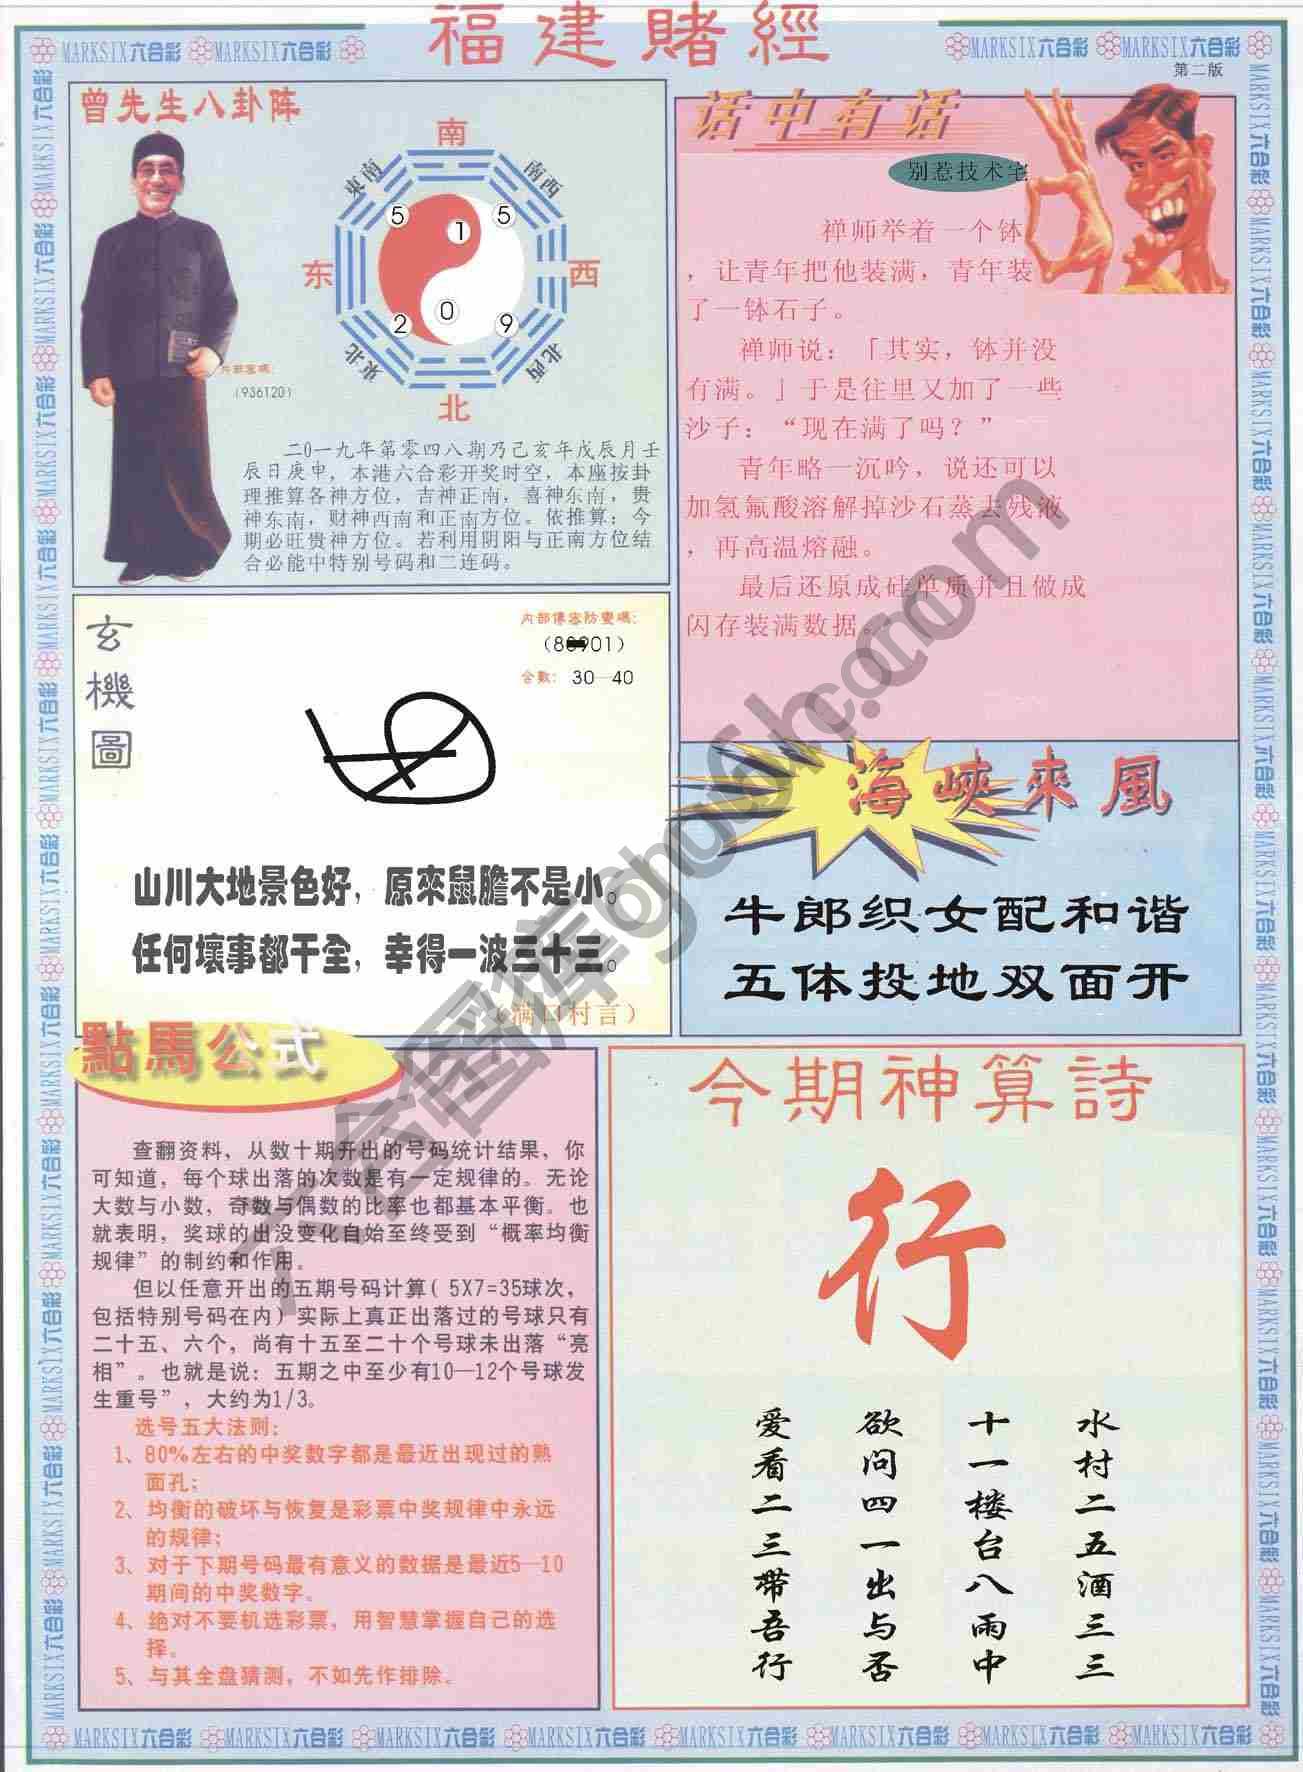 福建賭經
MARKSIX六合彩 MARKSIX六合彩
MARKSIX六合彩 MARKSIX六合彩
第二版
曾先生八卦阵
南
東南
南西
5
1
5
东
西
2
0
9
東北
北西
北
内部密碼：
（936120）
二0一九年第零四八期乃己亥年戊辰月壬
辰日庚申，本港六合彩开奖时空，本座按卦
理推算各神方位，吉神正南，喜神东南，贵
神东南，财神西南和正南方位。依推算：今
期必旺贵神方位。若利用阴阳与正南方位结
合必能中特别号码和二连码。
话中有话
别惹技术宅
禅师举着一个钵
，让青年把他装满，青年装
了一钵石子。
禅师说：「其实，钵并没
有满。」于是往里又加了一些
沙子：“现在满了吗？”
青年略一沉吟，说还可以
加氢氟酸溶解掉沙石蒸去残液
，再高温熔融。
最后还原成硅单质并且做成
闪存装满数据。
玄機圖
内部傳密防變碼：
合數：30—40
山川大地景色好，原來鼠膽不是小。
任何壞事都干全，幸得一波三十三。
（满口村言）
海峽來風
牛郎织女配和谐
五体投地双面开
點馬公式
查翻资料，从数十期开出的号码统计结果，你
可知道，每个球出落的次数是有一定规律的。无论
大数与小数，奇数与偶数的比率也都基本平衡。也
就表明，奖球的出没变化自始至终受到“概率均衡
规律”的制约和作用。
但以任意开出的五期号码计算（5X7=35球次，
包括特别号码在内）实际上真正出落过的号球只有
二十五、六个，尚有十五至二十个号球未出落“亮
相”。也就是说：五期之中至少有10—12个号球发
生重号”，大约为1/3。
选号五大法则：
1、80%左右的中奖数字都是最近出现过的熟
面孔；
2、均衡的破坏与恢复是彩票中奖规律中永远
的规律；
3、对于下期号码最有意义的数据是最近5—10
期间的中奖数字。
4、绝对不要机选彩票，用智慧掌握自己的选
择。
5、与其全盘猜测，不如先作排除。
今期神算詩
行
水村二五酒三三
十一楼台八雨中
欲问四一出与否
爱看二三带吾行
六合图库
MARKSIX六合彩 MARKSIX六合彩 MARKSIX六合彩 MARKSIX六合彩 MARKSIX六合彩 MARKSIX六合彩 MARKSIX六合彩 MARKSIX六合彩